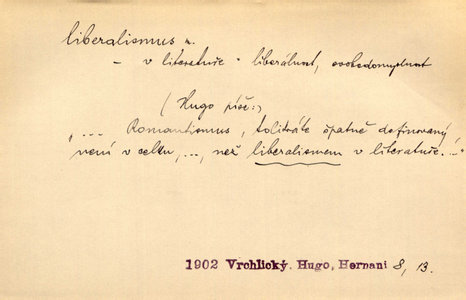 liberalismus m.
- v literatuře - liberálnost, svobodomyslnost
(Hugo píše:)
"... Romantismus, tolikráte špatně definovaný,
není v celku, ..., než liberalismem v literatuře..."
1902 Vrchlický. Hugo, Hernani 8, 13.